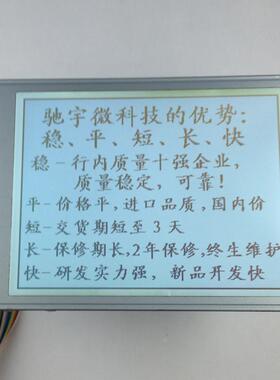 驰宇微科技的优势:
稳、平、短、长、快
稳-行内质量十强企业,
质量稳定,可靠!
平-价格平,进口品质,国内价
短-交货期短至3天
长-保修期长,2年保修,终生维护
快-研发实力强,新品开发快